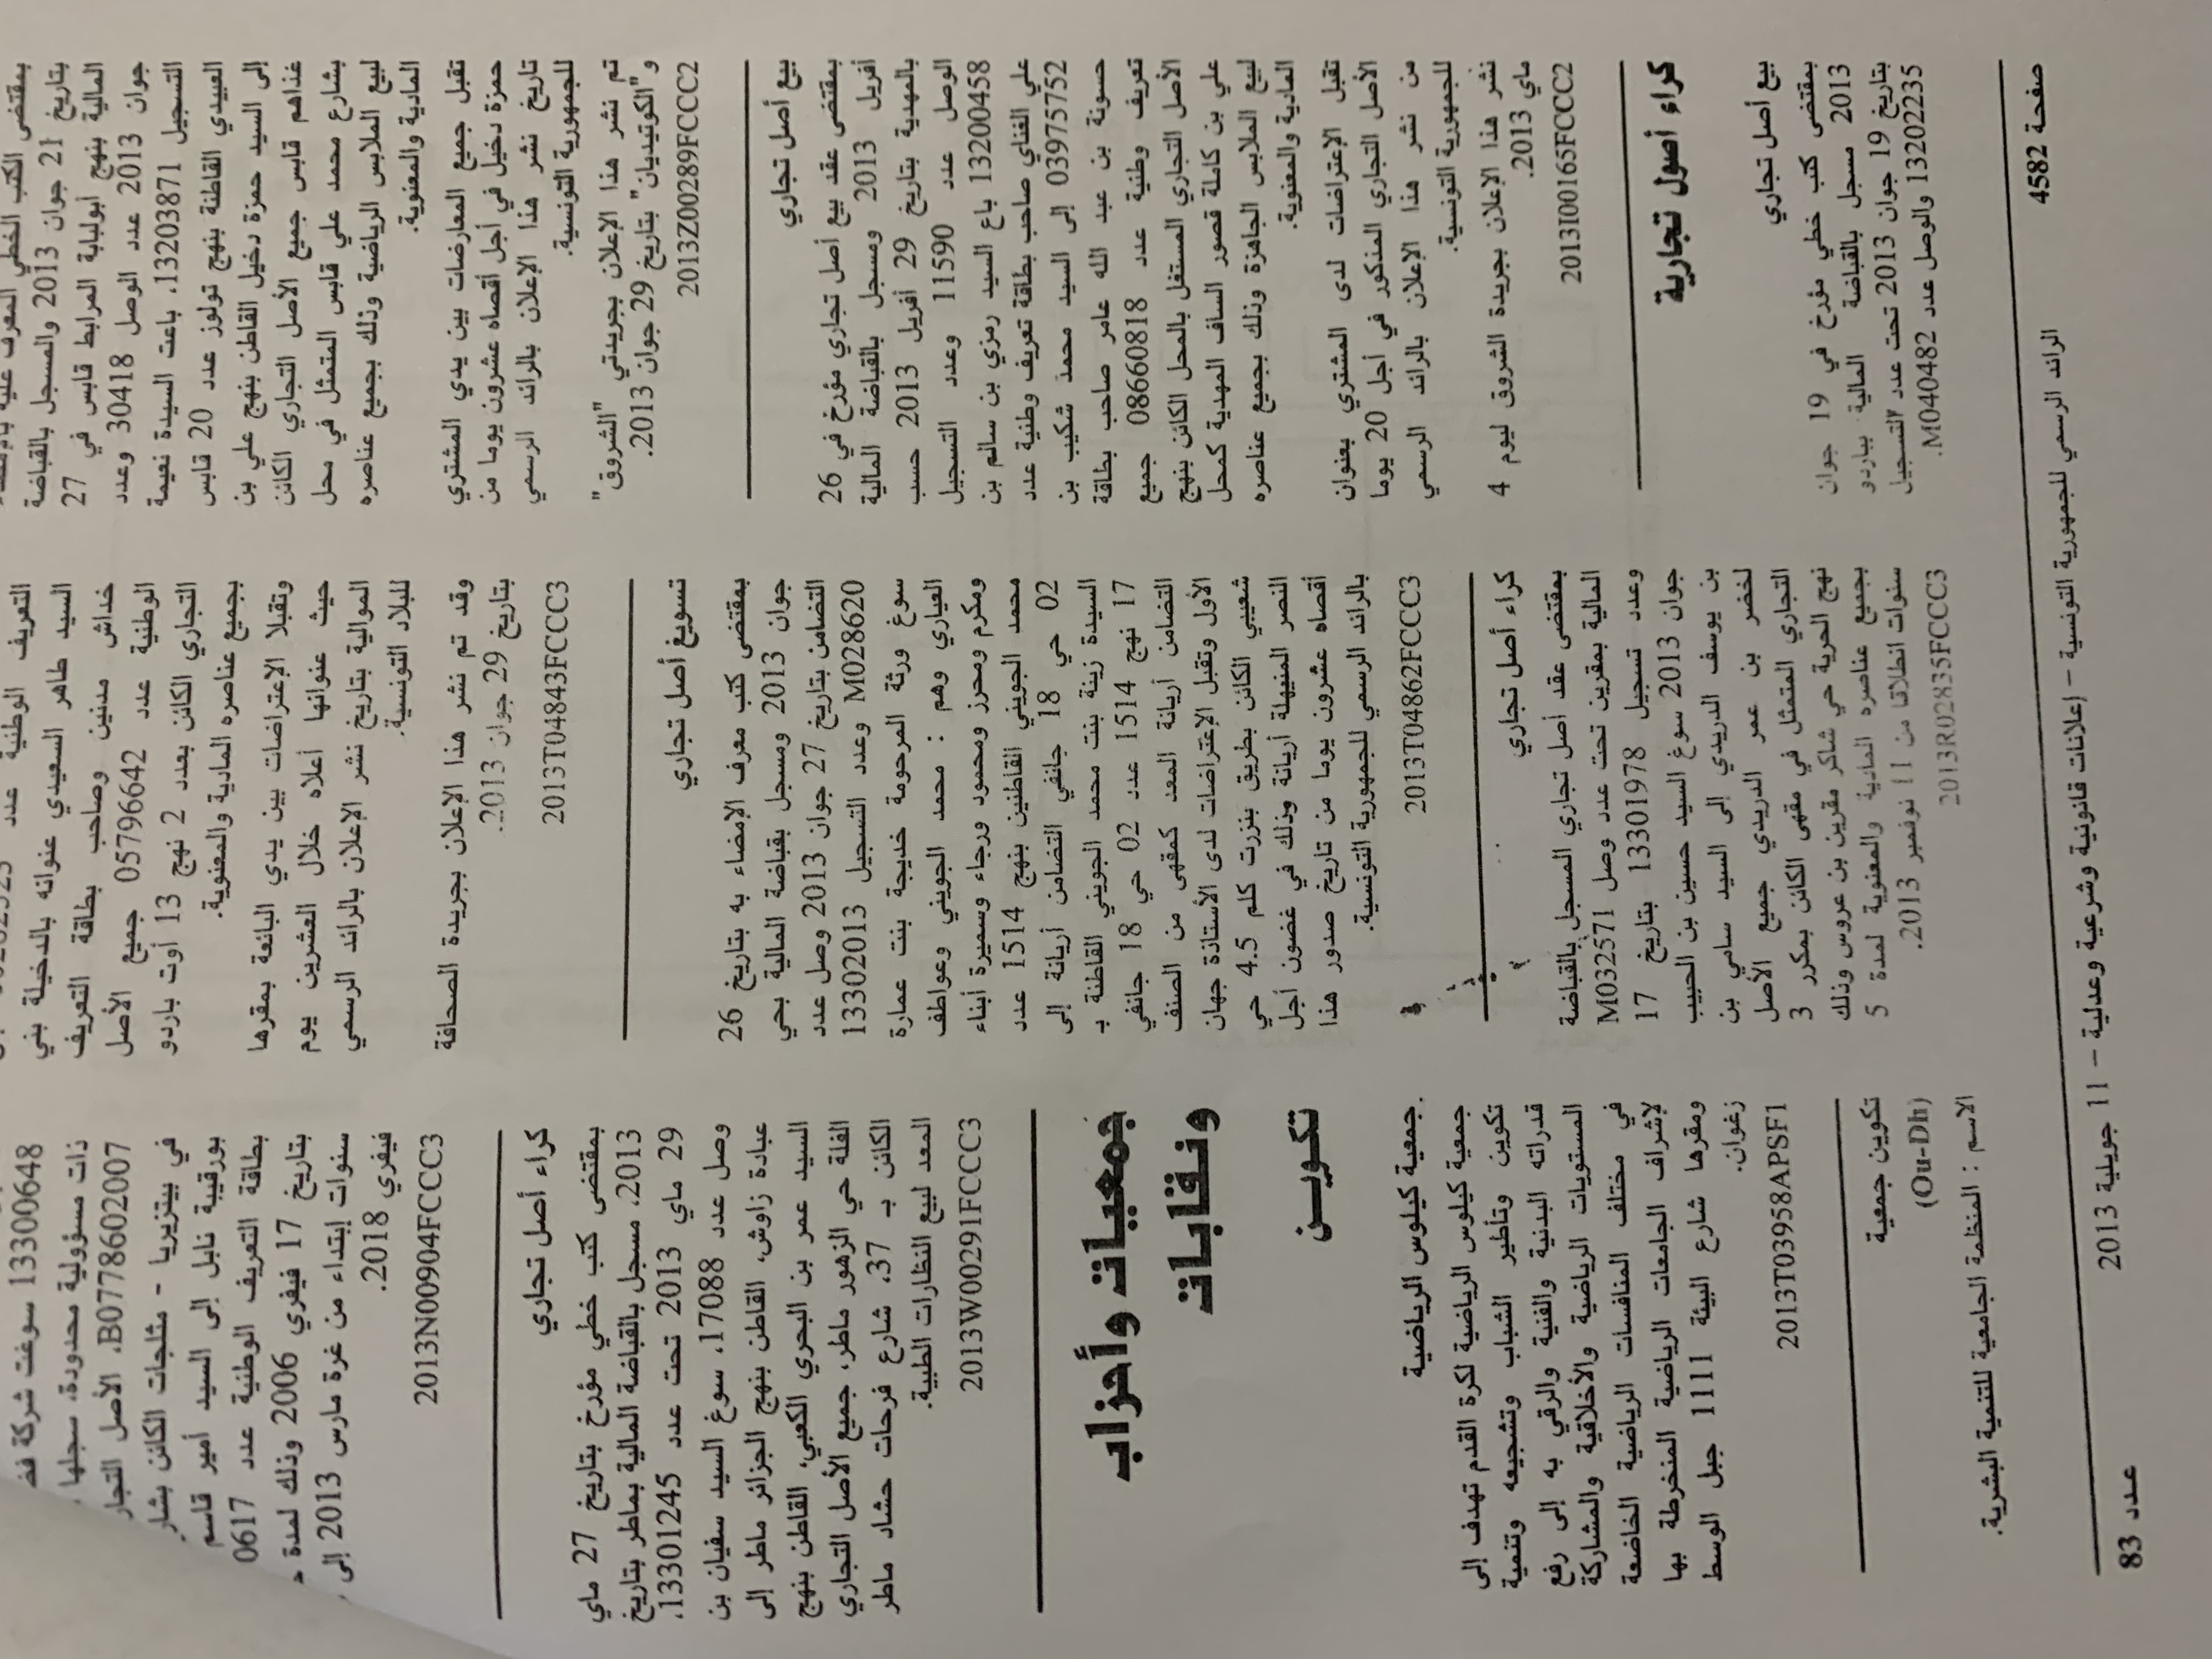 بمقتضى الكتب الخطي المعرف عليه
بتاريخ 21 جوان 2013 والمسجل بالقباضة
المالية بنهج أبولبابة المرابط قابس في 27
جوان 2013 عدد الوصل 30418 وعدد
التسجيل 13203871، باعت السيدة نعيمة
العبيدي القاطنة بنهج تولوز عدد 20 قابس
إلى السيد حمزة دخيل القاطن بنهج علي بن
غذاهم قابس جميع الأصل التجاري الكائن
بشارع محمد علي قابس المتمثل في محل
لبيع الملابس الرياضية وذلك بجميع عناصره
المادية والمعنوية.
تقبل جميع المعارضات بين يدي المشتري
حمزة دخيل في أجل أقصاه عشرون يوما من
تاريخ نشر هذا الإعلان بالرائد الرسمي
للجمهورية التونسية.
تم نشر هذا الإعلان بجريدتي "الشروق"
و"الكوتيديان" بتاريخ 29 جوان 2013.
2013Z00289FCCC2
بيع أصل تجاري
بمقتضى عقد بيع أصل تجاري مؤرخ في 26
أفريل 2013 ومسجل بالقباضة المالية
بالمهدية بتاريخ 29 أفريل 2013 حسب
الوصل عدد 11590 وعدد التسجيل
13200458 باع السيد رمزي بن سالم بن
علي الغناي صاحب بطاقة تعريف وطنية عدد
03975752 إلى السيد محمد شكيب بن
حسونة بن عبد الله عامر صاحب بطاقة
تعريف وطنية عدد 08660818 جميع
الأصل التجاري المستغل بالمحل الكائن بنهج
علي بن كاملة قصور الساف المهدية كمحل
لبيع الملابس الجاهزة وذلك بجميع عناصره
المادية والمعنوية.
تقبل الإعتراضات لدى المشتري بعنوان
الأصل التجاري المذكور في أجل 20 يوما
من نشر هذا الإعلان بالرائد الرسمي
للجمهورية التونسية.
نشر هذا الإعلان بجريدة الشروق ليوم 4
ماي 2013.
2013I00165FCCC2
كراء أصول تجارية
بيع أصل تجاري
بمقتضى كتب خطي مؤرخ في 19 جوان
2013 مسجل بالقباضة المالية بباردو
بتاريخ 19 جوان 2013 تحت عدد التسجيل
13202235 والوصل عدد M040482.
التعريف الوطنية عدد
السيد طاهر السعيدي عنوانه بالدخيلة بني
خداش مدنين وصاحب بطاقة التعريف
الوطنية عدد 05796642 جميع الأصل
التجاري الكائن بعدد 2 نهج 13 أوت باردو
بجميع عناصره المادية والمعنوية.
وتقبلا الإعتراضات بين يدي البائعة بمقرها
حيث عنوانها أعلاه خلال العشرين يوم
الموالية بتاريخ نشر الإعلان بالرائد الرسمي
للبلاد التونسية.
وقد تم نشر هذا الإعلان بجريدة الصحافة
بتاريخ 29 جوان 2013.
2013T04843FCCC3
تسويغ أصل تجاري
بمقتضى كتب معرف الإمضاء به بتاريخ 26
جوان 2013 ومسجل بقباضة المالية بحي
التضامن بتاريخ 27 جوان 2013 وصل عدد
M028620 وعدد التسجيل 13302013
سوغ ورثة المرحومة خديجة بنت عمارة
العياري وهم : محمد الجويني وعواطف
ومكرم ومحرز ومحمود ورجاء وسميرة أبناء
محمد الجويني القاطنين بنهج 1514 عدد
02 حي 18 جانفي التضامن أريانة إلى
السيدة زينة بنت محمد الجويني القاطنة بـ
17 نهج 1514 عدد 02 حي 18 جانفي
التضامن أريانة المعد كمقهى من الصنف
الأول وتقبل الإعتراضات لدى الأستاذة جهان
شعيبي الكائن بطريق بنزرت كلم 4.5 حي
النصر المنيهلة أريانة وذلك في غضون أجل
أقصاه عشرون يوما من تاريخ صدور هذا
بالرائد الرسمي للجمهورية التونسية.
2013T04862FCCC3
كراء أصل تجاري
بمقتضى عقد أصل تجاري المسجل بالقباضة
المالية بمقرين تحت عدد وصل M032571
وعدد تسجيل 13301978 بتاريخ 17
جوان 2013 سوغ السيد حسين بن الحبيب
بن يوسف الدريدي إلى السيد سامي بن
لخضر بن عمر الدريدي جميع الأصل
التجاري المتمثل في مقهى الكائن بمكرر 3
نهج الحرية حي شاكر مقرين بن عروس وذلك
بجميع عناصره المادية والمعنوية لمدة 5
سنوات انطلاقا من 11 نوفمبر 2013.
2013R02835FCCC3
13300648 سوغت شركة
ذات مسؤولية محدودة، سجلها
B0778602007، الأصل التجار
في بيتزيريا - مثلجات الكائن بشار
بورقيبة نابل إلى السيد أمير قاسم
بطاقة التعريف الوطنية عدد 0617
بتاريخ 17 فيفري 2006 وذلك لمدة
سنوات إبتداء من غرة مارس 2013 إلى
فيفري 2018.
2013N00904FCCC3
كراء أصل تجاري
بمقتضى كتب خطي مؤرخ بتاريخ 27 ماي
2013، مسجل بالقباضة المالية بماطر بتاريخ
29 ماي 2013 تحت عدد 13301245،
وصل عدد 17088، سوغ السيد سفيان بن
عبادة زاوش، القاطن بنهج الجزائر ماطر إلى
السيد عمر بن البحري الكعبي، القاطن بنهج
الفلة حي الزهور ماطر، جميع الأصل التجاري
الكائن بـ 37، شارع فرحات حشاد ماطر
المعد لبيع النظارات الطبية.
2013W00291FCCC3
جمعيات وأحزاب
ونقابات
تكويـن
جمعية كيلوس الرياضية
جمعية كيلوس الرياضية لكرة القدم تهدف إلى
تكوين وتأطير الشباب وتشجيعه وتنمية
قدراته البدنية والفنية والرقي به إلى رفع
المستويات الرياضية والأخلاقية والمشاركة
في مختلف المنافسات الرياضية الخاضعة
لإشراف الجامعات الرياضية المنخرطة بها
ومقرها شارع البيئة 1111 جبل الوسط
زغوان.
2013T03958APSF1
تكوين جمعية
(Ou-Dh)
الاسم : المنظمة الجامعية للتنمية البشرية.
صفحة 4582
الرائد الرسمي للجمهورية التونسية – إعلانات قانونية وشرعية وعدلية – 11 جويلية 2013
عدد 83